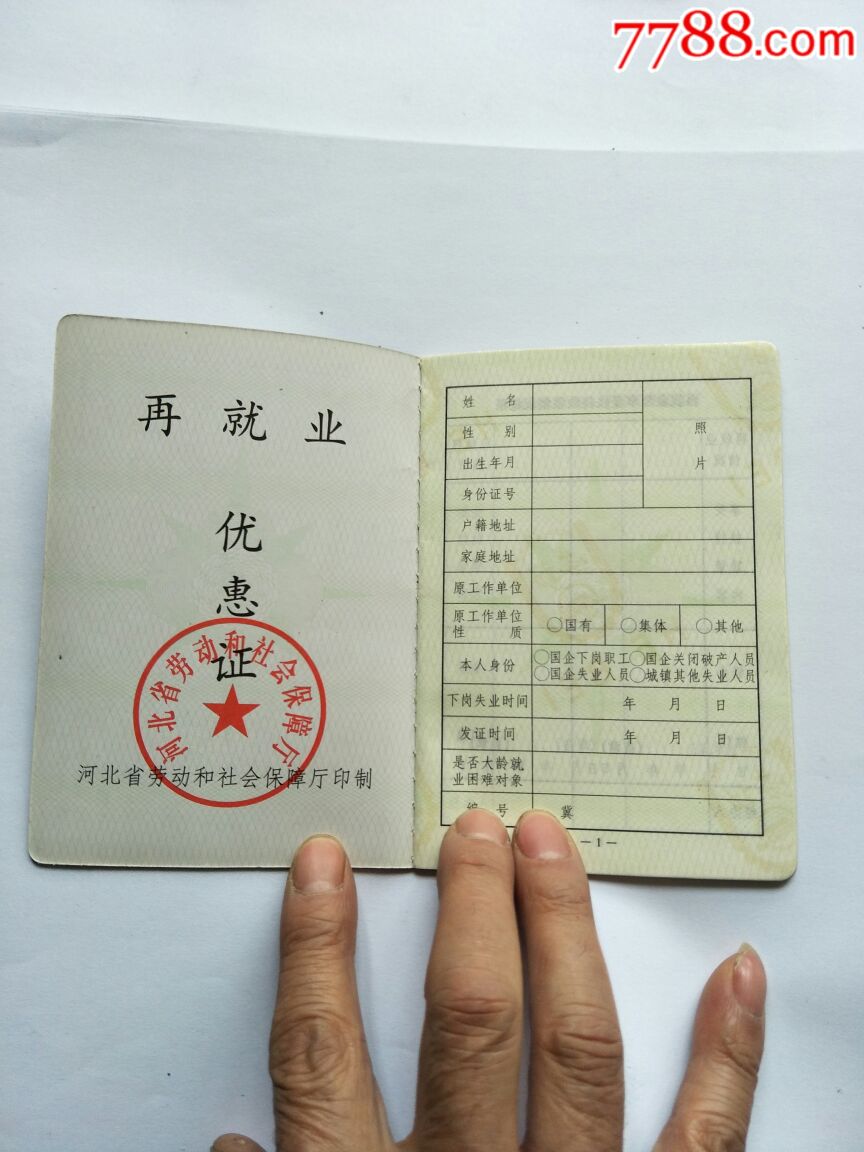 7788.com
再就业
优
惠
证
河北省劳动和社会保障厅
河北省劳动和社会保障厅印制
姓 名
照
片
性 别
出生年月
身份证号
户籍地址
家庭地址
原工作单位
原工作单位
性 质
○国有 ○集体 ○其他
本人身份
○国企下岗职工○国企关闭破产人员
○国企失业人员○城镇其他失业人员
下岗失业时间 年 月 日
发证时间 年 月 日
是否大龄就
业困难对象
编 号 冀
-1-